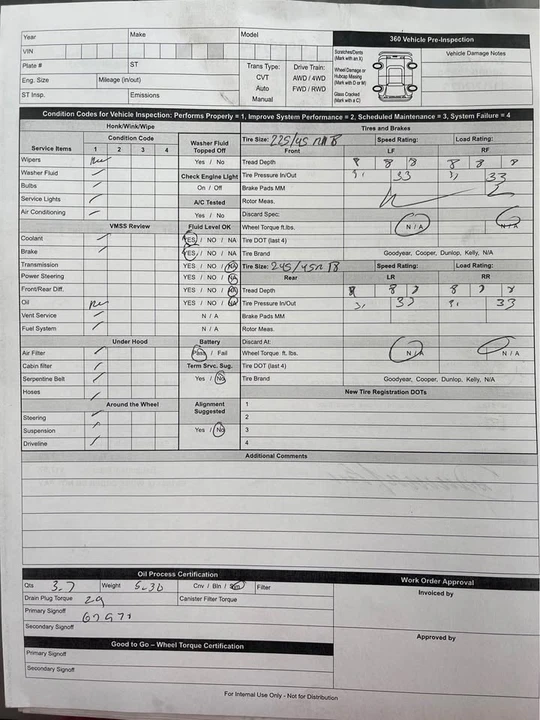 Year Make Model 360 Vehicle Pre-Inspection
VIN Scratches/Dents (Mark with an X) Vehicle Damage Notes
Plate # ST Trans Type: Drive Train:
CVT AWD / 4WD Wheel Damage or Hubcap Missing (Mark with O or M)
Eng. Size Mileage (in/out) Auto FWD / RWD
ST Insp. Emissions Manual Glass Cracked (Mark with a C)
Condition Codes for Vehicle Inspection: Performs Properly = 1, Improve System Performance = 2, Scheduled Maintenance = 3, System Failure = 4
Honk/Wink/Wipe Tires and Brakes
Condition Code Washer Fluid Topped Off Tire Size: 225/45 Speed Rating: Load Rating:
Service Items 1 2 3 4 Front LF RF
Wipers New Yes / No Tread Depth 8 8 8 8 8 8
Washer Fluid Check Engine Light Tire Pressure In/Out 31 33 33
Bulbs On / Off Brake Pads MM
Service Lights A/C Tested Rotor Meas.
Air Conditioning Yes / No Discard Spec.
VMSS Review Fluid Level OK Wheel Torque ft.lbs. N / A N / A
Coolant YES / NO / NA Tire DOT (last 4)
Brake YES / NO / NA Tire Brand Goodyear, Cooper, Dunlop, Kelly, N/A
Transmission YES / NO / NA Tire Size: 245/45R 18 Speed Rating: Load Rating:
Power Steering YES / NO / NA Rear LR RR
Front/Rear Diff. YES / NO / NA Tread Depth 8 8
Oil New YES / NO / NA Tire Pressure In/Out 33 33
Vent Service N / A Brake Pads MM
Fuel System N / A Rotor Meas.
Under Hood Battery Discard At:
Air Filter Pass / Fail Wheel Torque ft. lbs. N / A N / A
Cabin filter Term Srvc. Sug. Tire DOT (last 4)
Serpentine Belt Yes / No Tire Brand Goodyear, Cooper, Dunlop, Kelly, N/A
Hoses New Tire Registration DOTs
Around the Wheel Alignment Suggested 1
Steering 2
Suspension Yes / No 3
Driveline 4
Additional Comments
Oil Process Certification Work Order Approval
Qts 3.7 Weight 5-30 Cnv / Bln / Syn Filter Invoiced by
Drain Plug Torque 29 Canister Filter Torque
Primary Signoff
Secondary Signoff
Approved by
Good to Go – Wheel Torque Certification
Primary Signoff
Secondary Signoff
For Internal Use Only - Not for Distribution